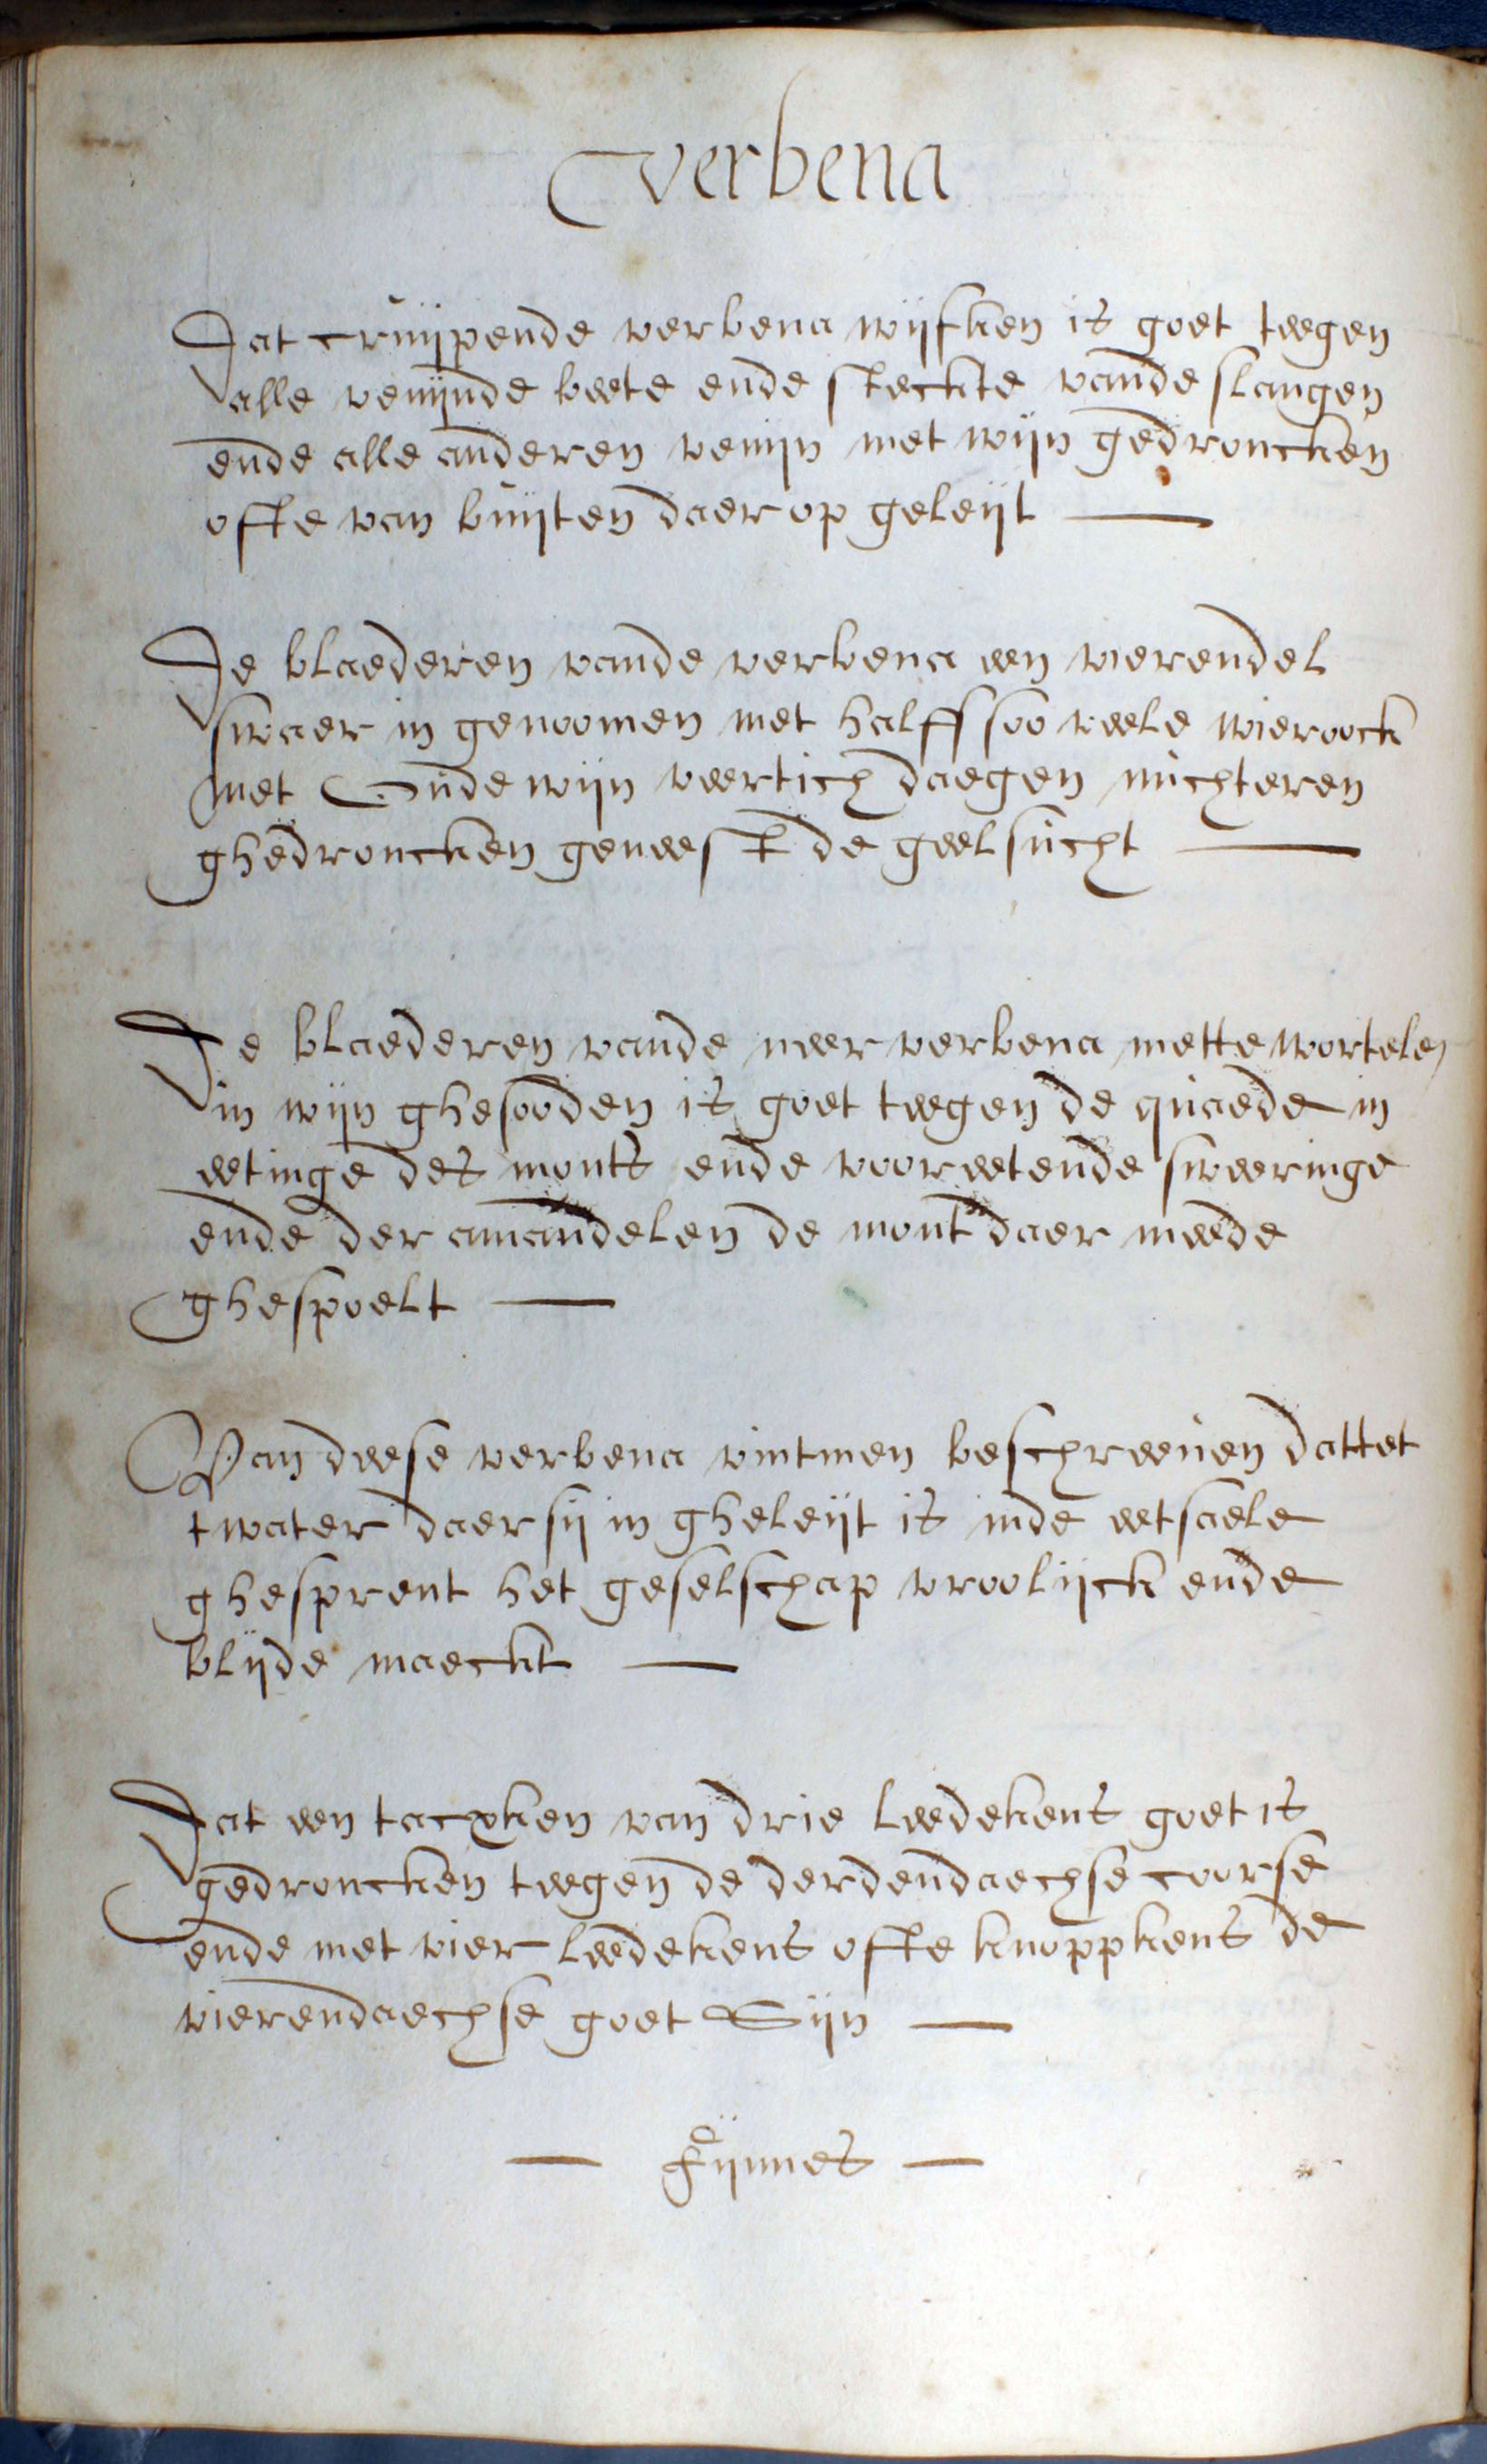 verbena
Dat cruijpende verbena wijfken is goet teegen
alle venijnde beete ende steckte vande slangen
ende alle anderen venijn met wijn gedroncken
ofte van buijten daer op geleijt —
De blaederen vande verbena een vierendel
swaer in genoomen met halff soo veele wieroock
met Oude wijn veertich daegen nuchteren
ghedroncken geneest de geelsucht —
De blaederen vande neer verbena mette wortelen
in wijn ghesooden is goet teegen de quaede in
eetinge des monts ende voort eetende sweeringe
ende der amandelen de mont daer meede
ghespoelt —
Van deese verbena vintmen beschreeuen dattet
twater daer sij in gheleijt is inde eetsaele
ghesprent het geselschap vroolijck ende
blijde maeckt —
Dat een tacxken van drie leedekens goet is
gedroncken teegen de derdendaechse coorse
ende met vier leedekens ofte knoppkens de
vierendaechse goet Sijn —
— Fijnnes —